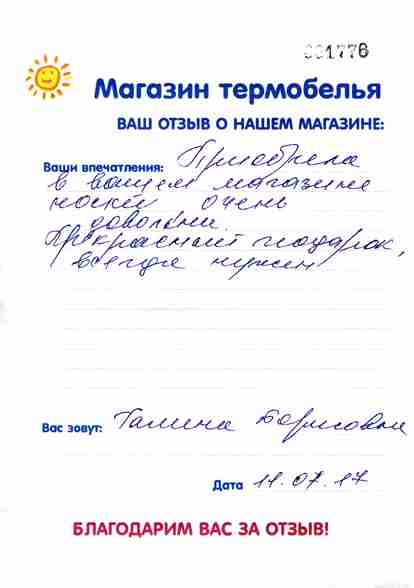 001776
Магазин термобелья
ВАШ ОТЗЫВ О НАШЕМ МАГАЗИНЕ:
Ваши впечатления: Приобрела
в вашем магазине
носки очень
довольны.
Прекрасный подарок,
всегда нужен
Вас зовут: Галина Борисовна
Дата 11.07.17
БЛАГОДАРИМ ВАС ЗА ОТЗЫВ!